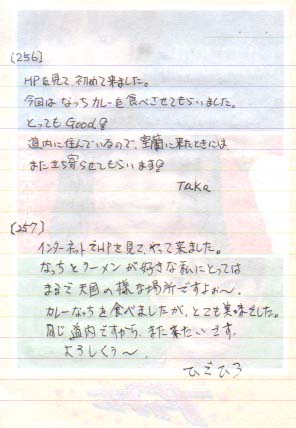 [256]
HPを見て初めて来ました。
今回はなっちカレーを食べさせてもらいました。
とってもGood!
道内に住んでいるので、室蘭に来たときには
また立ち寄らせてもらいます!
TAKA
[257]
インターネットでHPを見て、やって来ました。
なっちとラーメンが好きな私にとっては
まるで天国の様な場所ですよぉ〜。
カレーなっちを食べましたが、とても美味でした。
同じ道内ですから、また来たいです。
よろしくぅ〜
ひでひろ